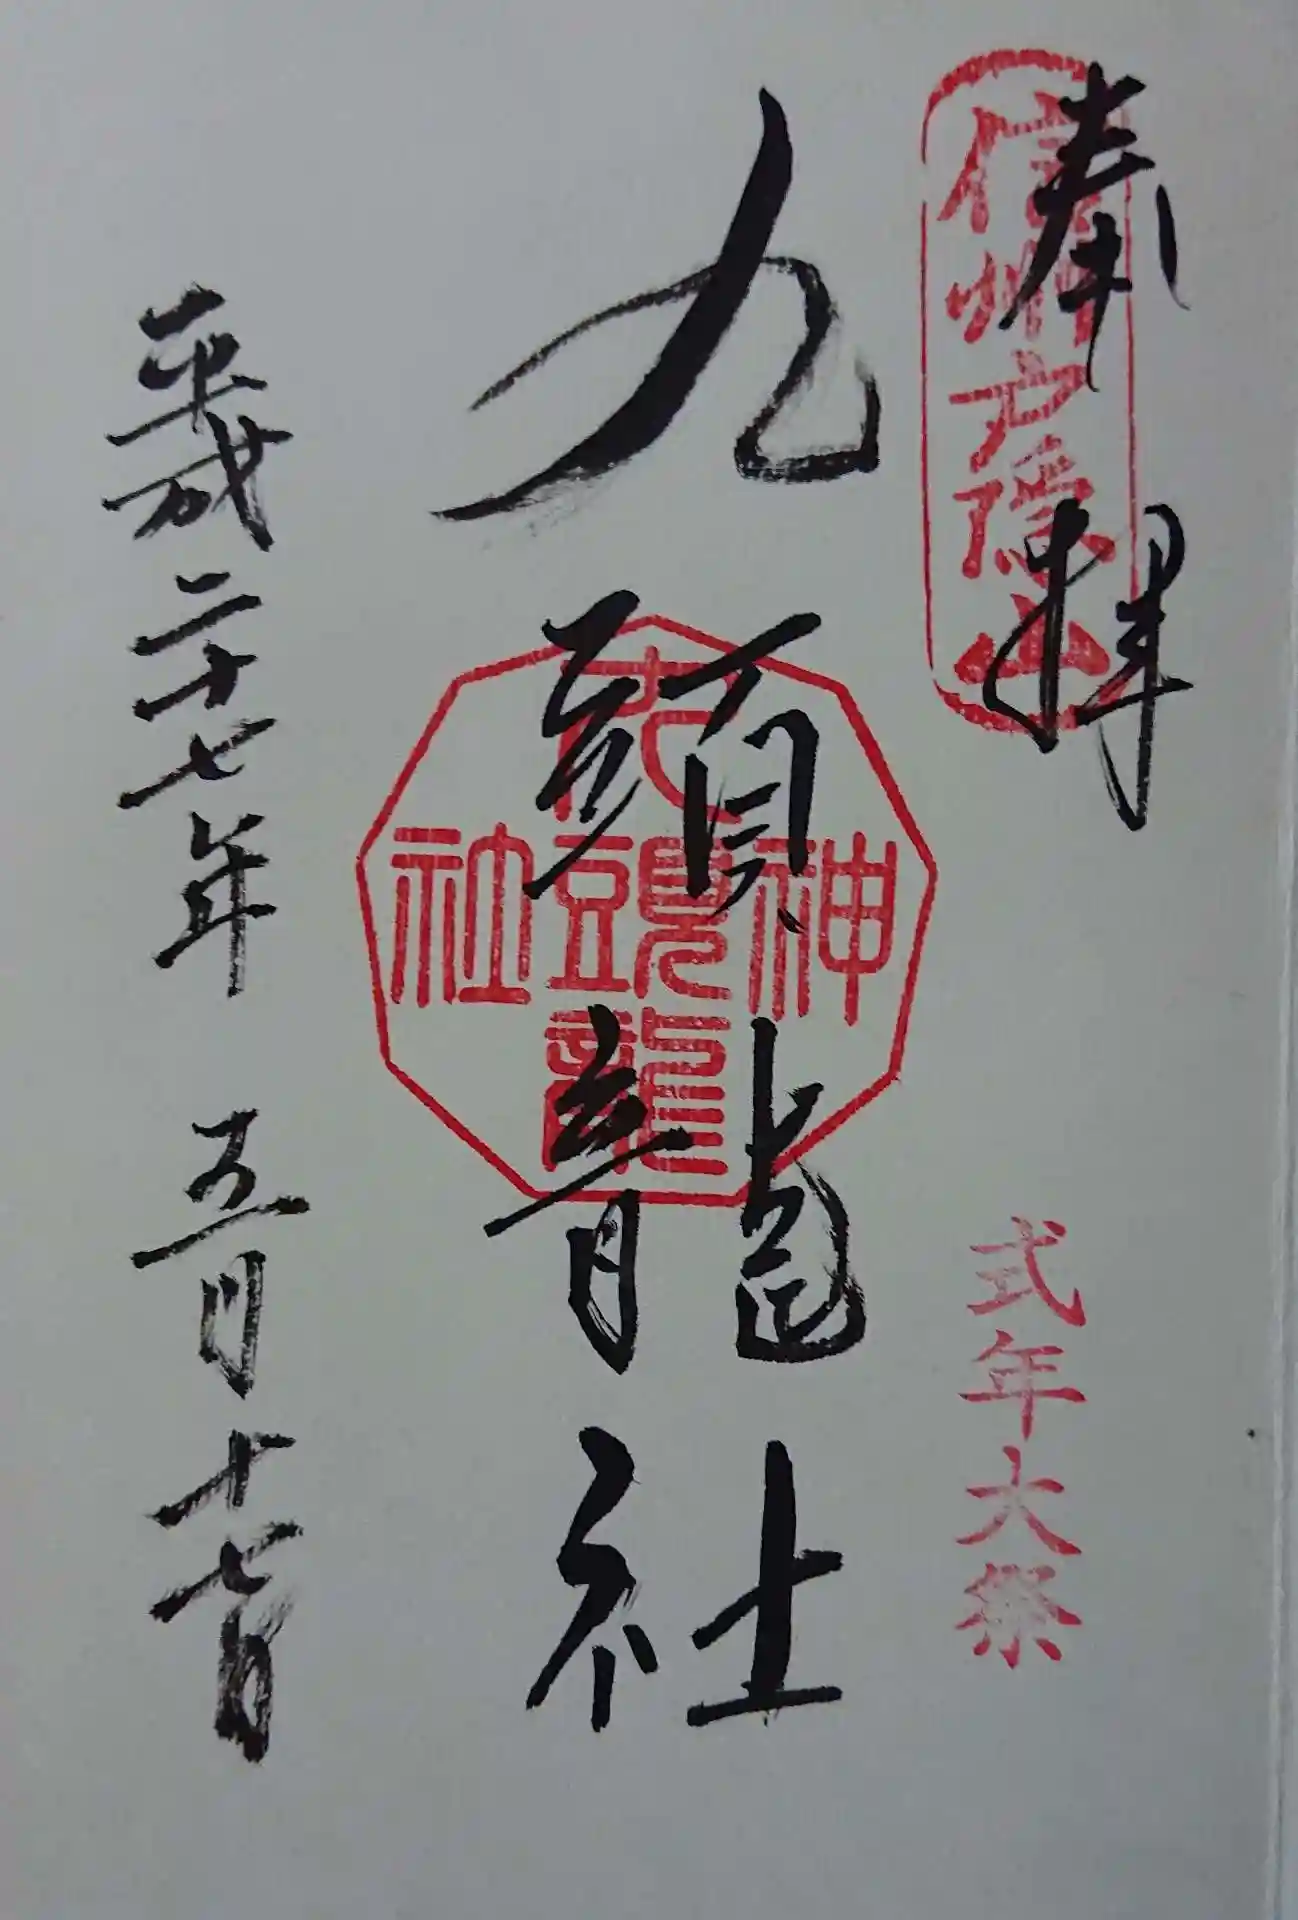 奉拝
信州戸隠山
式年大祭
九頭龍社
九頭龍
神社
平成二十七年 五月十七日